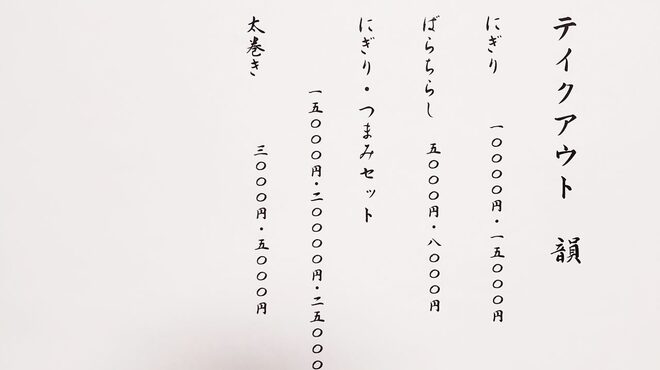 テイクアウト 韻
にぎり
一〇〇〇〇円・一五〇〇〇円
ばらちらし
五〇〇〇円・八〇〇〇円
にぎり・つまみセット
一五〇〇〇円・二〇〇〇〇円・二五〇〇〇
太巻き
三〇〇〇円・五〇〇〇円